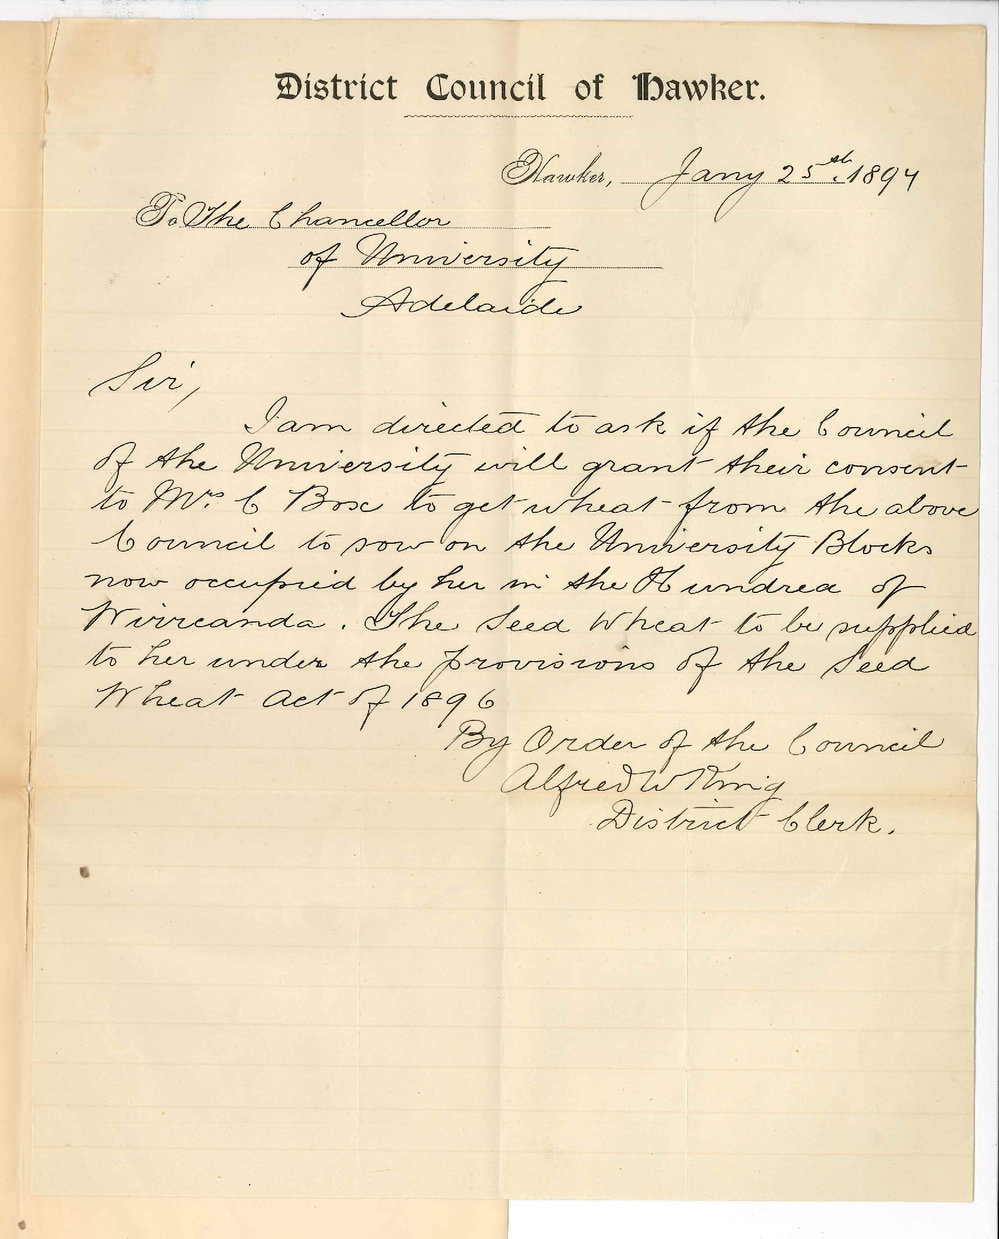 District Council of Hawker.
Hawker, Jany 25th 1897
To The Chancellor
of University
Adelaide
Sir,
I am directed to ask if the Council
of the University will grant their consent
to Mrs. C Box to get wheat from the above
Council to sow on the University Blocks
now occupied by her in the Hundred of
Wirreanda. The Seed Wheat to be supplied
to her under the provisions of the Seed
Wheat Act of 1896
By Order of the Council
Alfred W King
District Clerk.